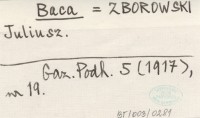 Baca = ZBOROWSKI
Juliusz.
Gaz. Podh. 5 (1917),
nr 19.
BT/003/0281